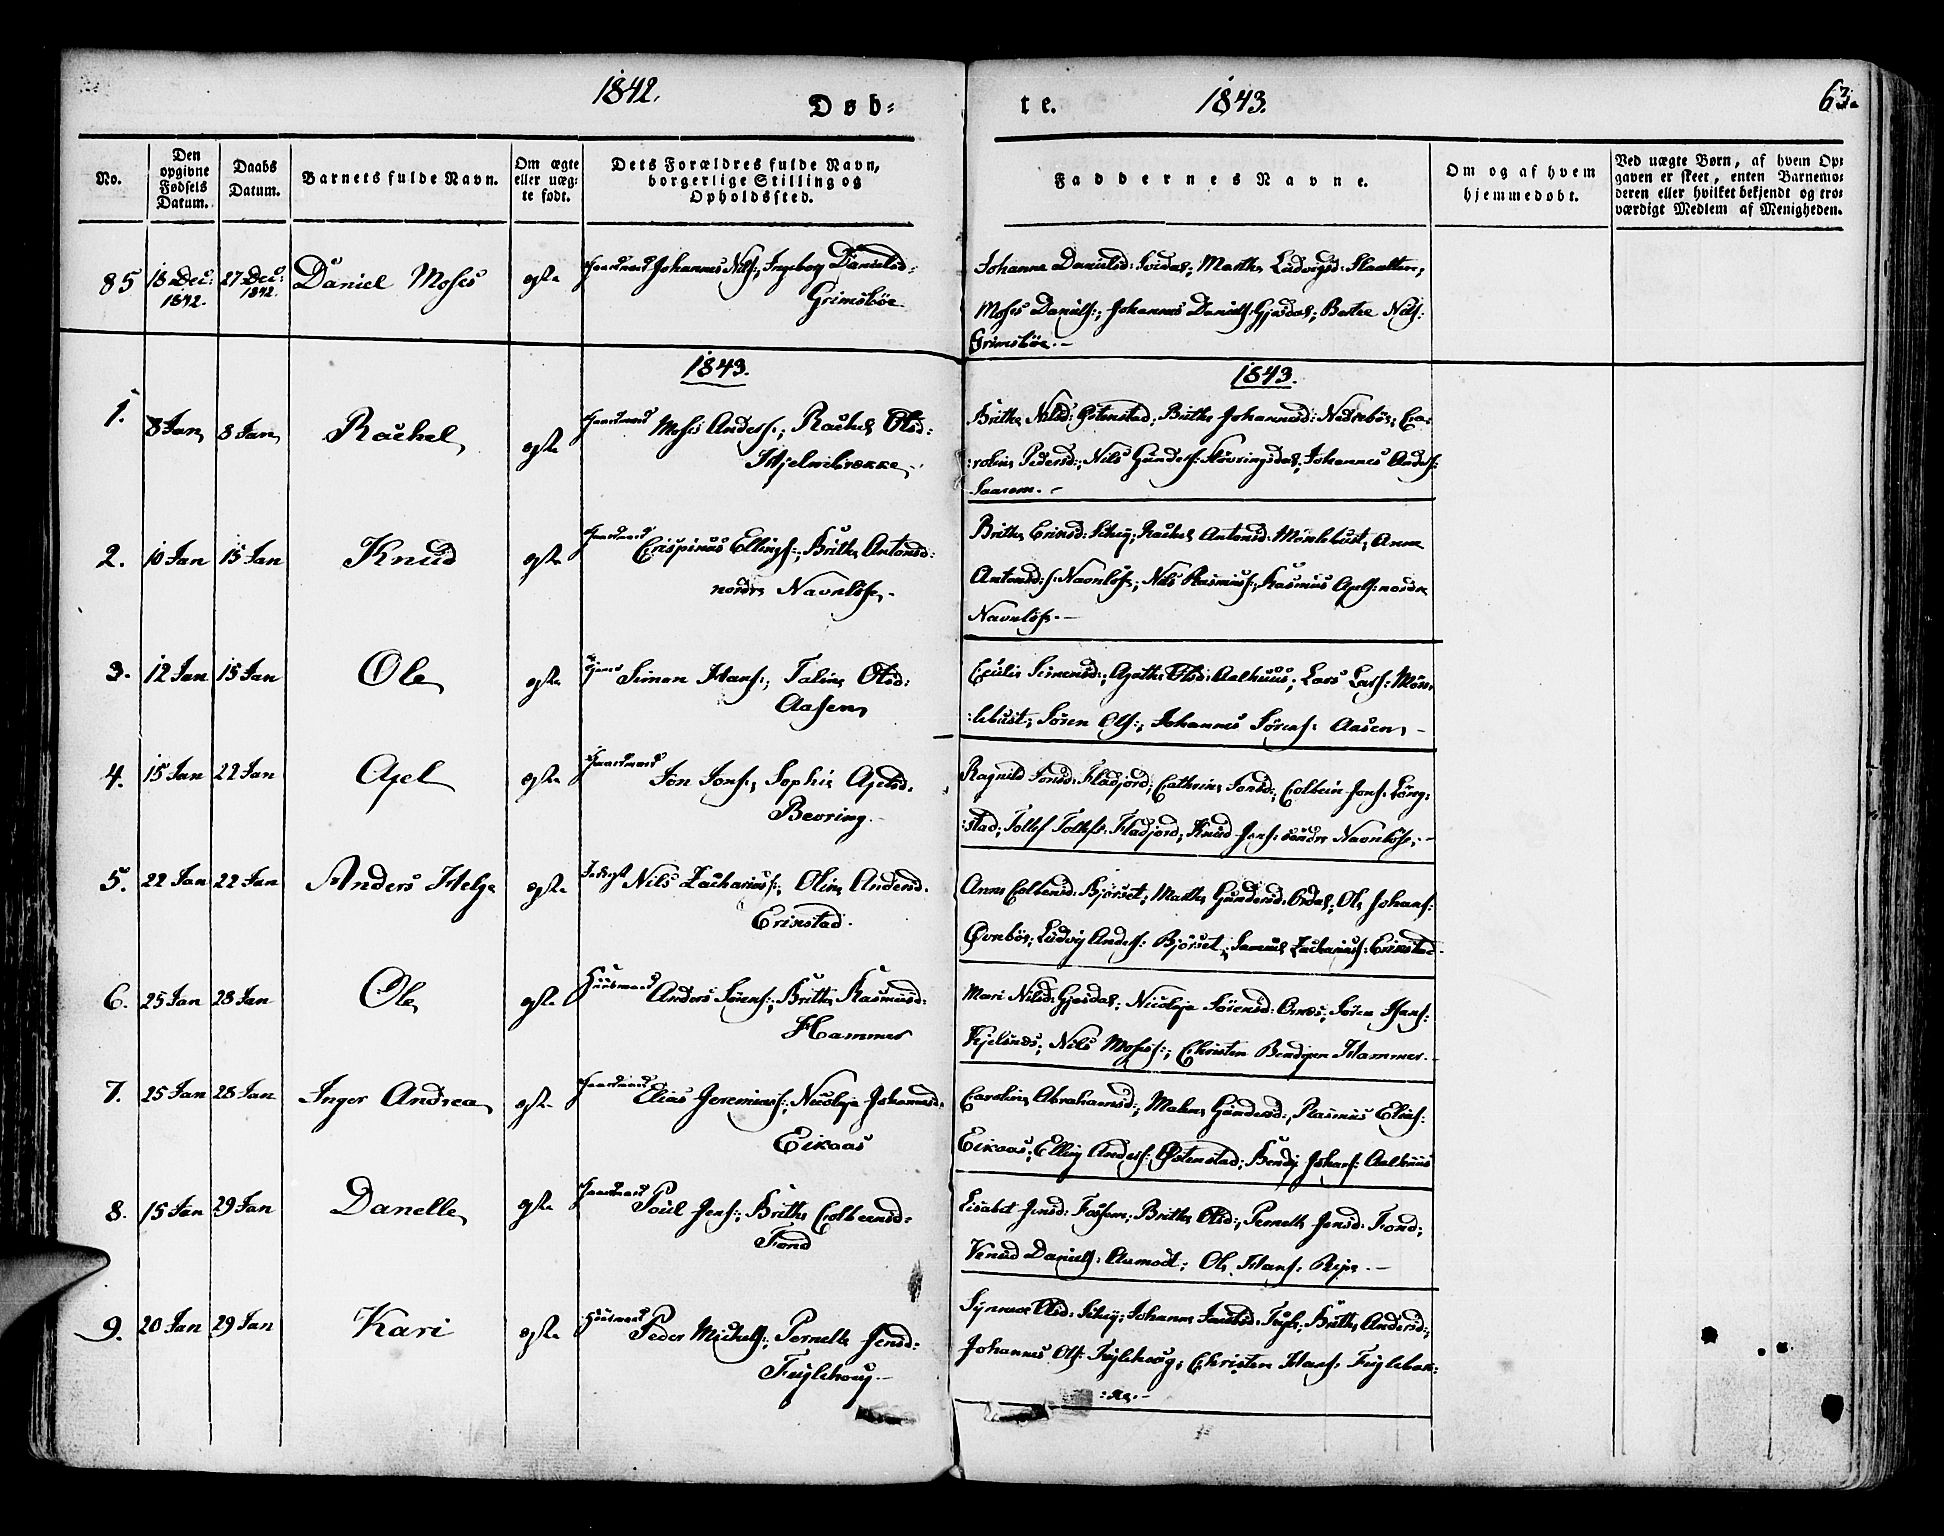 1842. Døb-
te. 1843. 63.
No. | Den opgivne Fødsels Datum. | Daabs Datum. | Barnets fulde Navn. | Om ægte eller uægte født. | Dets Forældres fulde Navn, borgerlige Stilling og Opholdssted. | Faddernes Navne. | Om og af hvem hjemmedøbt. | Ved uægte Børn, af hvem Opgaven er skeet, enten Barnemoderen eller hvilket bekjendt og troværdigt Medlem af Menigheden.
85 18 Dec: 1842. 27 Dec: 1842. Daniel Moses egte Gaardmand Johannes Nils:, Ingebog Danielsd:
Grimsbøe
Johanne Danielsd: Marthe Ludvigsd:
Moses Daniels:, Johannes Daniels: Gjesdal; Nils:
Grimsbøe.-
1843.
1843.
1. 8 Jan 8 Jan Rachel egte Gaardmand Moses Anders:, Rachel Olsd:
Hjelmebrekke
Brithe Nilsd: Østenstad; Brithe Johannesd: Nedrebøe; Ca-
roline Pedersd:, Nils Gunders: Støvringsdal, Johannes Anders:
2. 10 Jan 15 Jan Knud egte Gaardmand Crispinus Ellings:, Brithe Antonsd:
nordre Navnløse
Brithe Eriksd: Rachel Antonsd: Mønlebust, Anne
Antonsd: s: Navnløse; Nils Rasmus:, Rasmus Axels: nordre
Navnløse.-
3. 12 Jan 15 Jan Ole egte Simon Hans:, Taline Olsd:
Aasen
Cecilie Simensd:, Agathe Olsd: Aalhuus; Lars Lars: Møn-
:lebust, Søren Ols:, Johannes Sørens: Aasen.-
4. 15 Jan 22 Jan Axel egte Gaardmand Jon Jons:, Sophie Axelsd:
Bevring
Ragnild Jonsd: Fladjord; Cathrine Jonsd:, Colbein Jons: Løng-
:stad; Tollef Tollefs: Fladjord; Knud Jens: søndre Navnløse.-
5. 22 Jan 22 Jan Anders Helge egte Nils Zacharias:, Oline Andersd:
Erikstad.
Anne Colbensd: Bjørset; Marthe Gundersd: Ole Johans:
Øvrebøe; Ludvig Anders: Bjørset; Samuel Zacharias: Erikstad
6. 25 Jan 28 Jan Ole egte Huusmand Anders Sørens:, Brithe Rasmusd:
Hammer
Mari Nilsd: Gjesdal; Nicoleje Sørensd: Søren Hans:
Kjelsnæs; Nils Moses:, Christen Hammer.-
7. 25 Jan 28 Jan Inger Andrea egte Gaardmand Elias Jeremias:, Nicoleje Johannesd:
Eikaas
Caroline Abrahamsd:, Malene Gundersd:, Rasmus Elias:
Eikaas; Elling Anders: Østenstad; Johans: Aalhuus
8. 15 Jan 29 Jan Danelle egte Gaardmand Poul Jens:, Brithe Colbensd:
Fond
Lisabet Jensd: Fossem; Brithe Olsd:, Pernelle Jensd: Fond
Knud Daniels: Aamodt; Ole Hans:
9. 20 Jan 29 Jan Kari egte Huusmand Peder Mickels:, Pernelle Jensd:
Fuglehoug
Synneve Olsd: Johanne Brithe Andersd:,
Johannes Ols: Fuglehoug; Christen Hans: Fuglebek-
:ke.-